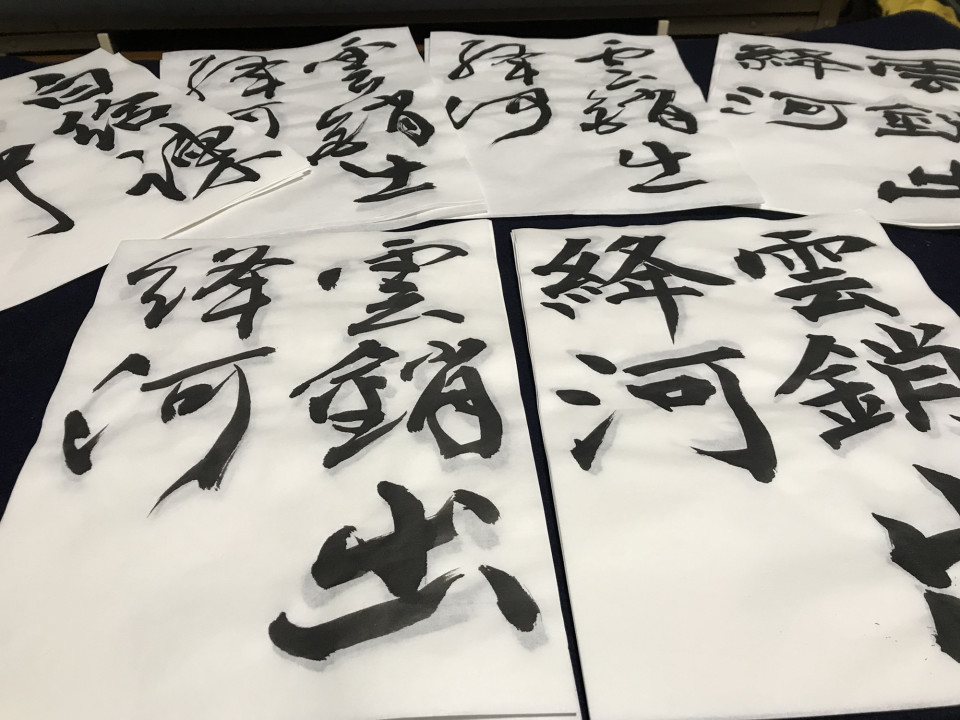 雲銷出
絳河
雲銷出
絳河
雲銷出
絳河
雲銷出
絳河
雲銷出
絳河